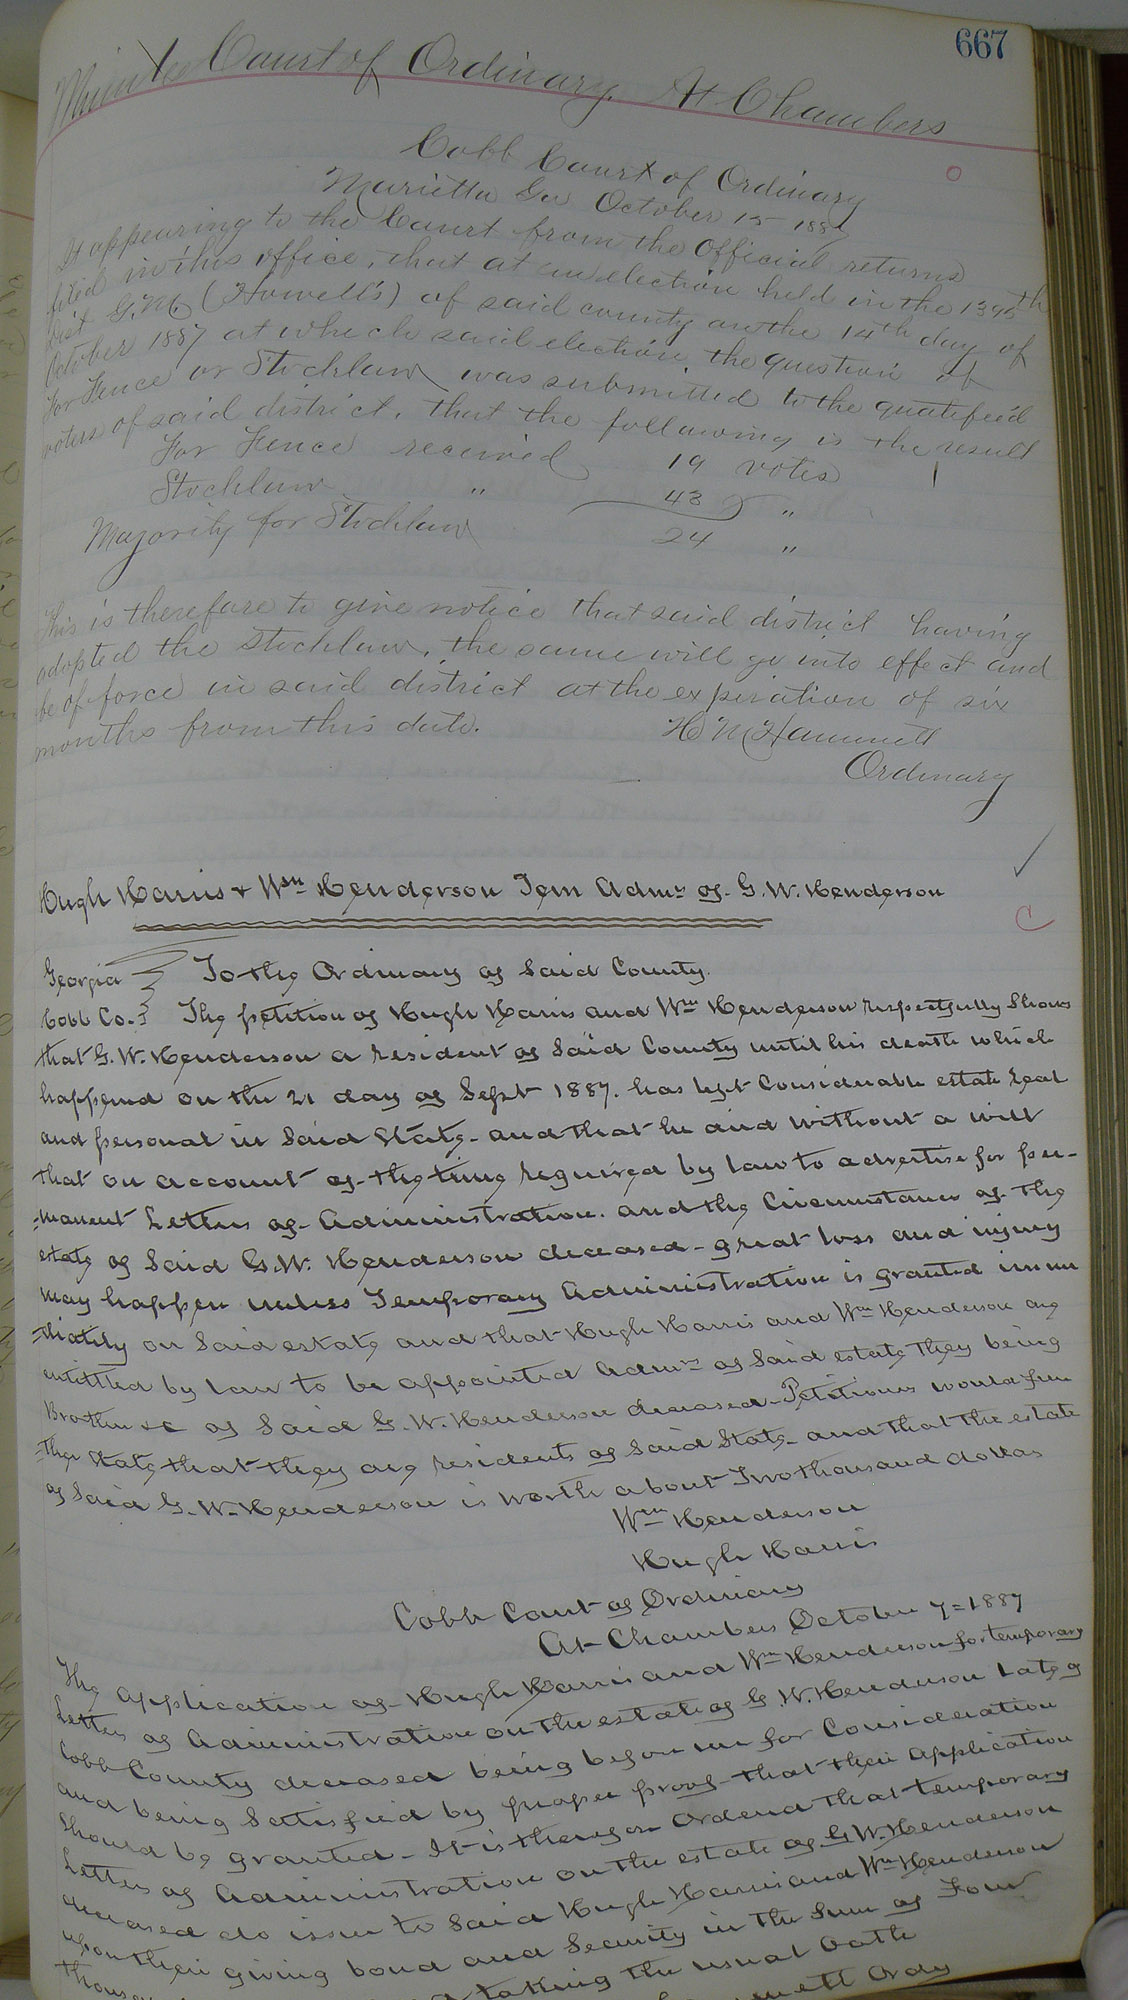 667
Minutes Court of Ordinary. At Chambers
Cobb Court of Ordinary
Marietta Ga October 15 1887
It appearing to the Court from the Official returns
filed in this office, that at an election held in the 1395th
Dist G.M. (Howell's) of said county on the 14th day of
October 1887 at which said election the question of
For Fence or Stocklaw was submitted to the qualified
voters of said district, that the following is the result
For Fence received 19 votes
Stocklaw " 43 "
Majority for Stocklaw 24 "
This is therefore to give notice that said district having
adopted the stocklaw, the same will go into effect and
be of force in said district at the expiration of six
months from this date.
H M Hammett
Ordinary
Hugh Harris & Wm Henderson Tem Admrs of G. W. Henderson
Georgia } To the Ordinary of Said County.
Cobb Co. } The petition of Hugh Harris and Wm Henderson respectfully Shows
that G. W. Henderson a resident of Said County until his death which
happend on the 21 day of Sept 1887. has left Considerable estate real
and personal in Said State - and that he died without a will
that on account of the time required by law to advertise for per-
=manent Letters of Administration. and the Circumstances of the
estate of Said G. W. Henderson deceased - great loss and injury
may happen unless Temporary Administration is granted imme
=diately on Said estate and that Hugh Harris and Wm Henderson are
entitled by law to be appointed Admrs of Said estate they being
Brothers &c of Said G. W. Henderson deceased - Petitioners would fur
=ther State that they are residents of Said State - and that the estate
of Said G. W. Henderson is worth about Two thousand dollars
Wm Henderson
Hugh Harris
Cobb Court of Ordinary
At Chambers October 7=1887
The Application of Hugh Harris and Wm Henderson for temporary
Letters of Administration on the estate of G. W. Henderson late of
Cobb County deceased being before me for Consideration
and being Satisfied by proper proof that their application
Should be granted - It is therefore Ordered that temporary
Letters of Administration on the estate of G W. Henderson
deceased do issue to Said Hugh Harris and Wm Henderson
upon their giving bond and Security in the Sum of Four
taking the usual Oath
Ordy